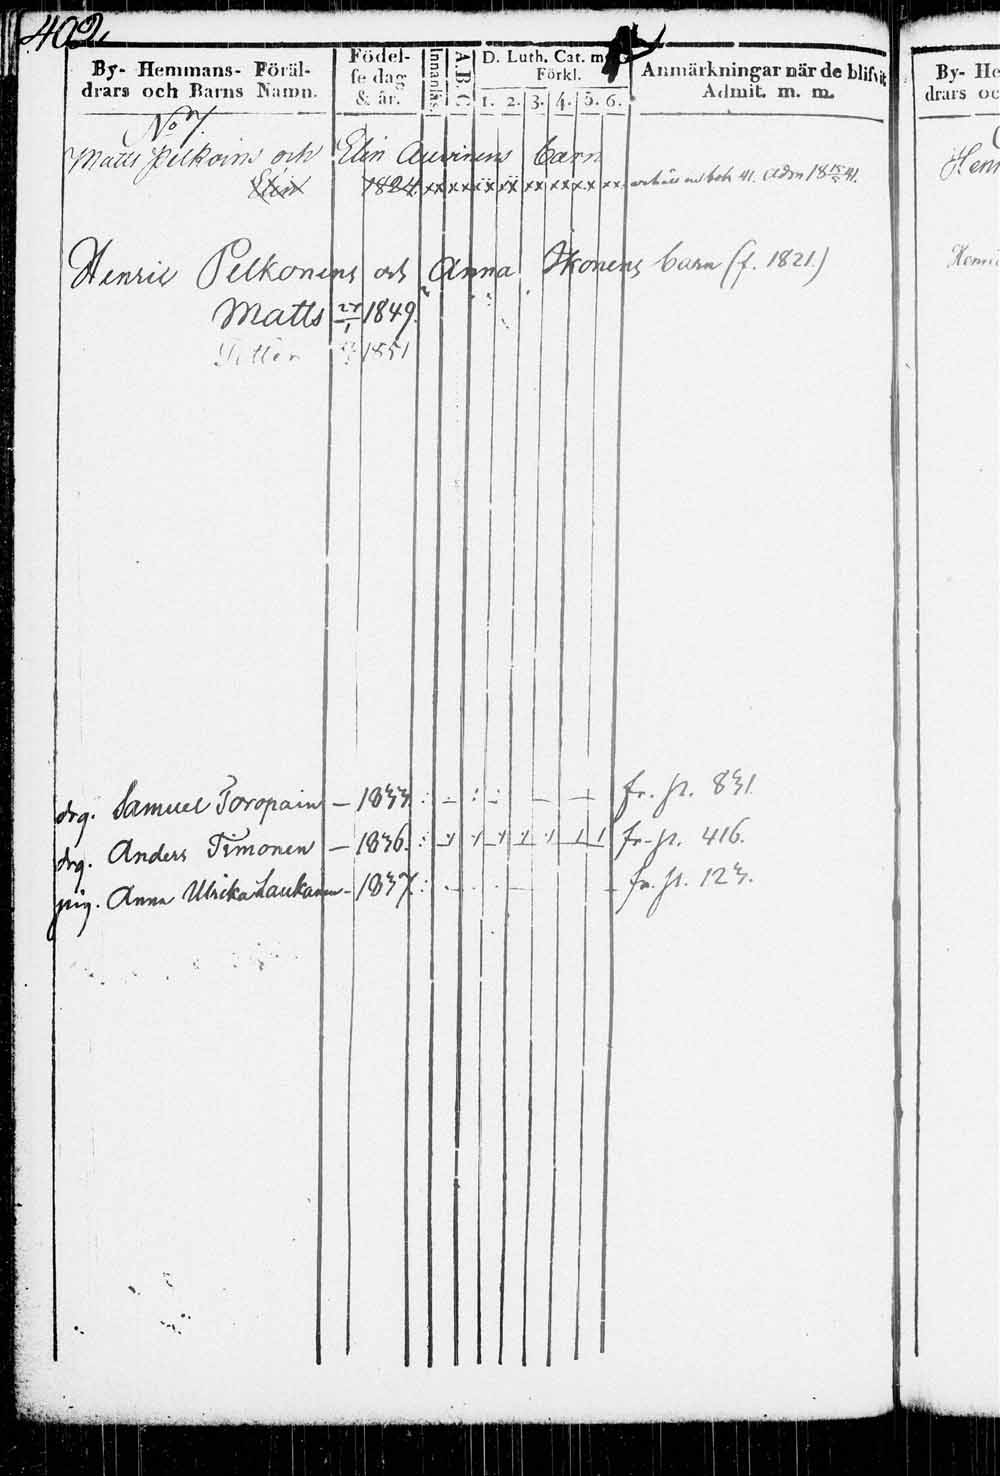 402
By- Hemmans- Föräl-
drars och Barns Namn.
Födel-
se dag
& år.
Innanläs.
A.B.C.
D. Luth. Cat. m.
Förkl.
1. 2. 3. 4. 5. 6.
Anmärkningar när de blifvit
Admit. m. m.
No 7.
Matts Pelkoins och Elin Auvinens barn
Elin 1824 xx x x x xx xx xx xx x x xx bok 41. Adm 18 15/5 41.
Henric Pelkonens och Anna Ikonens barn (f. 1821.)
Matts 1849.
Petter 1851
drg. Samuel Toropain – 1833. fr. p. 831
drg. Anders Timonen – 1836. fr. p. 416.
pig. Anna Ulrika Laukanen – 1837. fr. p. 123.
By- He
drars oc
Henr
Henric